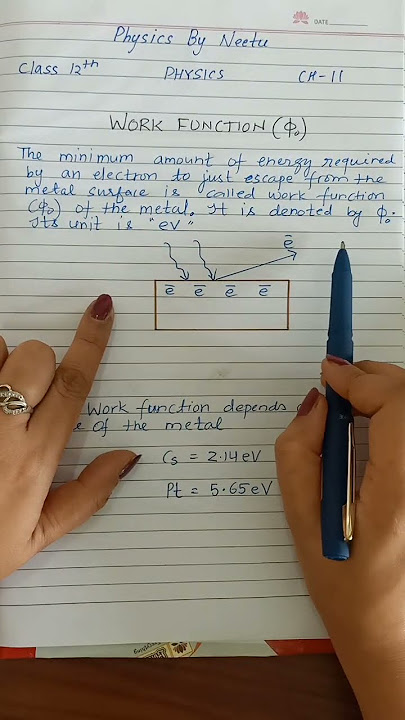 DATE
Physics By Neetu
Class 12th PHYSICS CH-11
WORK FUNCTION (ϕ₀)
The minimum amount of energy required
by an electron to just escape from the
metal surface is called work function
(ϕ₀) of the metal. It is denoted by ϕ₀.
Its unit is "eV"
e̅
e̅ e̅ e̅ e̅
Work function depends
of the metal
Cs = 2.14 eV
Pt = 5.65 eV